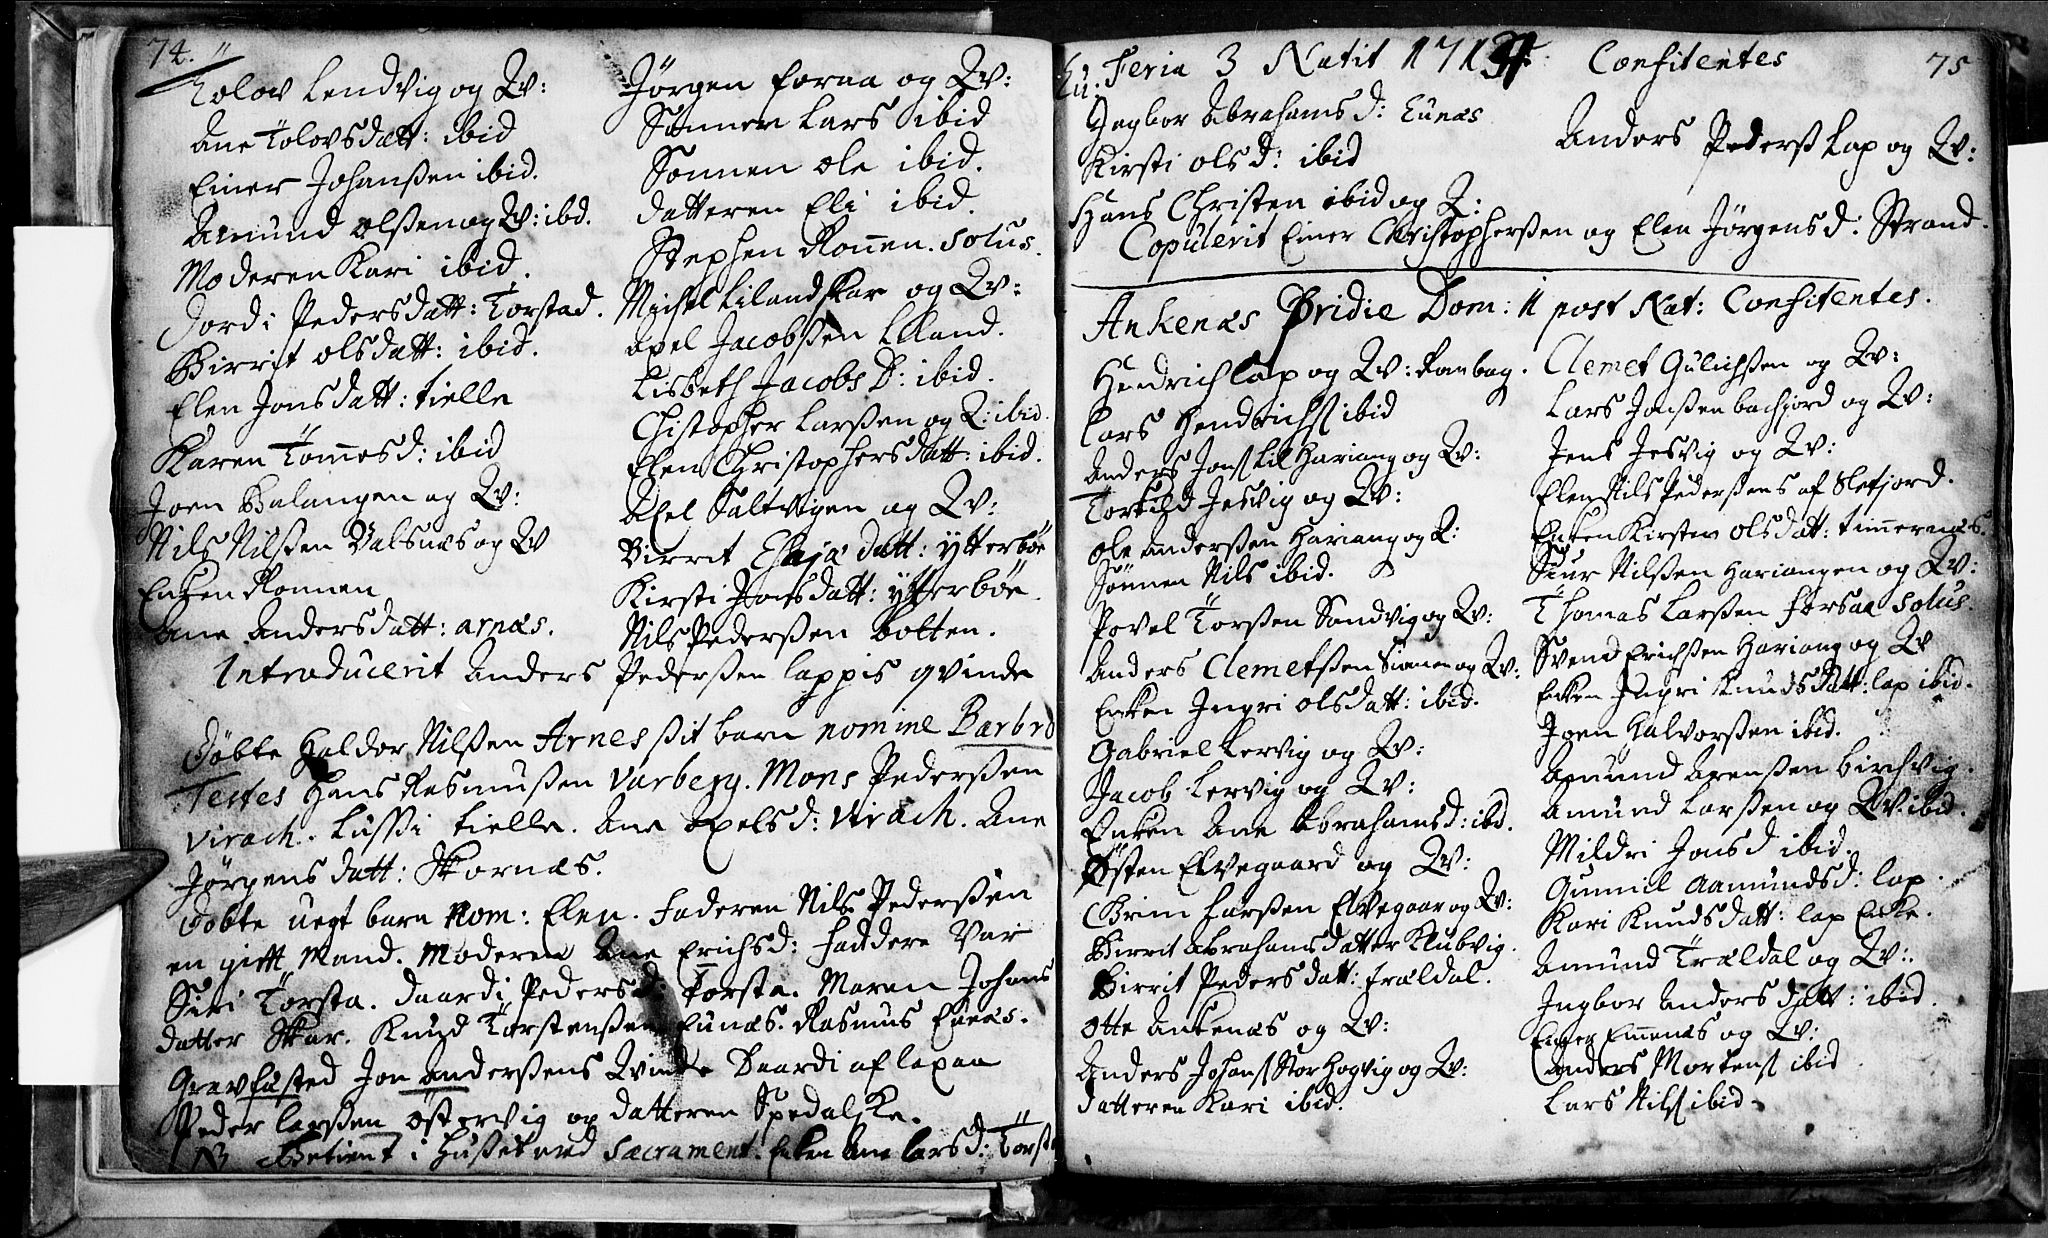 74.
Tolov Lendvig og Qv:
Ane Tolovsdatt: ibid
Einer Johanßen ibid.
Amund olßen og Qv: ibd.
Moderen Kari ibid.
Dordi Pedersdatt: Torstad.
Birrit olsdatt: ibid.
Elen Jonsdatt: tielle
Karen Tommesd: ibid
Joen Balangen og Qv:
Nils Nilßen Valsnæs og Qv
Enken Ronnen
Ane Andersdatt: arnæs.
Jørgen foraa og Qv:
Sønnen Lars ibid
Sonnen ole ibid.
datteren Eli ibid.
Stephen Ronnen. solus.
Michel Lilandskar og Qv:
Apel Jacobßen Liland.
Lisbeth Jacobs D: ibid.
Chistopher Larßen og Q: ibid.
Elen Christophersdatt: ibid.
Axel Saltvigen og Qv:
Birrit Esaja datt: ytterbøe
Kirsti Jonsdatt: ytterbøe.
Nils Pederßen botten.
Introducerit Anders Pederßen lappis qvinde
Døbte Haldor Nilßen Arnes ßit barn nomine Barbro
Testes Hans Rasmußen Varberg. Mons Pederßen
Virach. Lussi tielle. Ane Apelsd: Virach. Ane
Jørgensdatt: Skornæs.
Døbte uegt barn Nom: Elen. Faderen Nils Pederßen
en gift Mand. Moderen Ane Erichsd: Faddere Var
Siri Torsta. Daardi Pedersd: Torsta. Maren Johans
datter Skar. Knud Torstenßen Eunæs. Rasmus Eunæs.
Gravfæsted Jon Anderßens Qvinde Daardi af lapaa
Peder larßen østervig og datteren Spedalske.
NB Betient i Hußet med Sacrament. Enken Ane larsd: Torsta
75
Feria 3 Natit 1713 Confitentes
Ingbor Abrahamsd: Eunæs
Kirsti olsd: ibid
Hans Christen ibid og Q:
Anders Pederß Lap og Qv:
Copulerit Einer Christopherßen og Elen Jørgensd: Strand.
Ankenæs Pridie Dom: 1 post Nat: Confitentes.
Hendrich lap og Qv: Rombag.
Lars Hendrichs ibid
Anders Jons Lil Hariang og Qv:
Torkild Jesvig og Qv:
Ole Anderßen Hariang og Q:
Sønnen Nils ibid.
Povel Torßen Sandvig og Qv:
Anders Clemetßen og Qv:
Enken Ingri olsdatt: ibid.
Gabriel Lervig og Qv:
Jacob Lervig og Qv:
Enken Ane Abrahamsd: ibd.
Østen Elvegaard og Qv:
Grim Larßen Elvegaar og Qv:
Birrit abrahamsdatter Klubvig.
Birrit Pedersdatt: træ​ldal.
Otte Ankenæs og Qv:
Anders Johans Stor Hogvig og Qv:
datteren Kari ibid.
Clemet Gulichßen og Qv:
Lars Jonßen bachjord og Qv:
Jens Jesvig og Qv:
Elen Nils Pederßens af Slefjord.
Enken Kirsten Olsdatt: timernæs.
Siur Nilßen Hariangen og Qv:
Thomas Larßen forsaa solus.
Svend Erichßen Hariang og Qv
Enken Ingri Knudsdatt: lap ibid.
Joen Halvorßen ibid.
Amund Arenßen birchvig.
Amund Larßen og Qv: ibid.
Mildri Jonsd ibid.
Gunnil Aamundsd: lap.
Kari Knudsdatt: lap Enke.
Amund Træ​ldal og Qv:
Ingbor Andersdatt: ibid.
Emenæs og Qv:
Anders Mortens ibid
Lars Nils ibid.